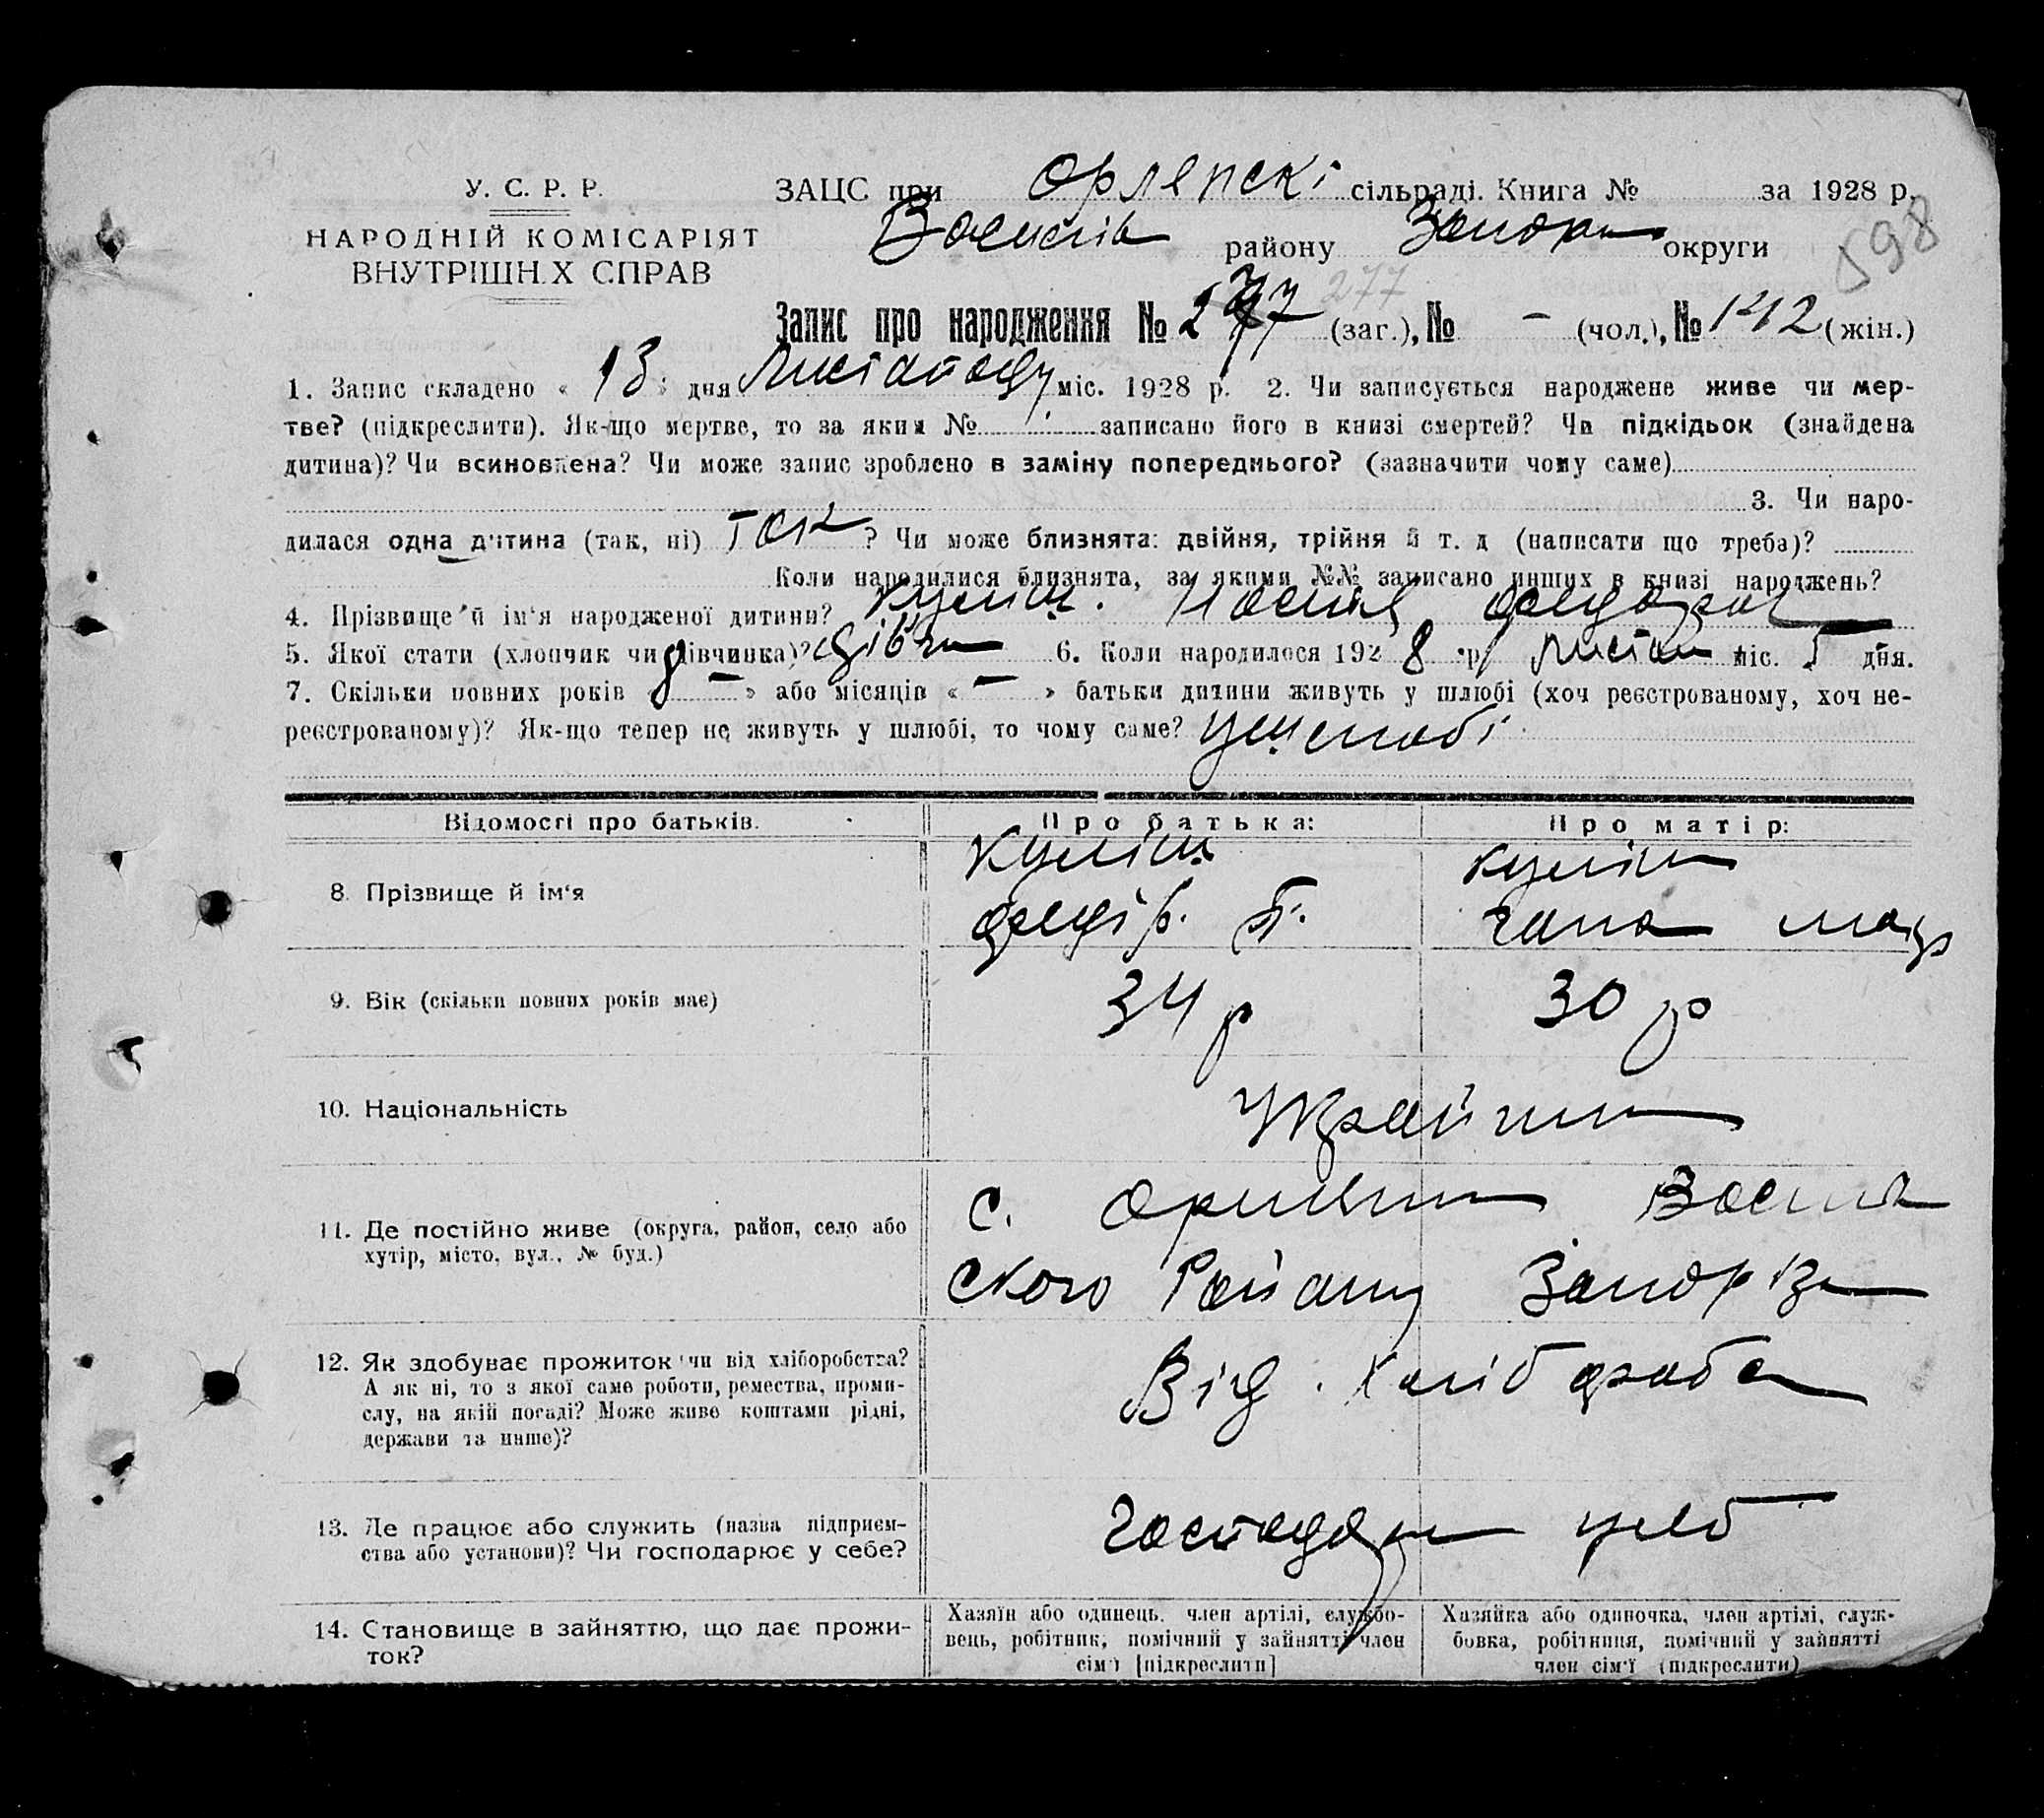 У. С. Р. Р.
НАРОДНІЙ КОМІСАРІЯТ
ВНУТРІШН.Х СПРАВ
ЗАЦС при сільраді. Книга № за 1928 р.
району Запоріз округи
598
Запис про народження № 277 277 (заг.), № – (чол.), № 142 (жін.)
1. Запис складено « 13 » дня Листопаду міс. 1928 р. 2. Чи записується народжене живе чи мер-
тве? (підкреслити). Як-що мертве, то за яким № записано його в книзі смертей? Чи підкідьок (знайдена
дитина)? Чи всиновлена? Чи може запис зроблено в заміну попереднього? (зазначити чому саме)
3. Чи наро-
дилася одна дитина (так, ні) Так ? Чи може близнята: двійня, трійня й т. д (написати що треба)?
Коли народилися близнята, за якими №№ записано инших в книзі народжень?
4. Прізвище й ім‘я народженої дитини? Куліш.
5. Якої стати (хлопчик чи дівчинка)? дівч 6. Коли народилося 192 8 р. листоп міс. 5 дня.
7. Скільки повних років « 8 – » або місяців « – » батьки дитини живуть у шлюбі (хоч реєстрованому, хоч не-
реєстрованому)? Як-що тепер не живуть у шлюбі, то чому саме? у шлюбі
Відомості про батьків.
Про батька:
Про матір:
8. Прізвище й ім‘я
Куліш
Федір. П.
Куліш
Гапа
9. Вік (скільки повних років має)
34 р
30 р
10. Національність
Україн
11. Де постійно живе (округа, район, село або
хутір, місто, вул., № буд.)
с.
ского Району Запоріз
12. Як здобуває прожиток чи від хліборобства?
А як ні, то з якої саме роботи, ремества, проми-
слу, на якій посаді? Може живе коштами рідні,
держави та инше)?
Від. Хлібороб
13. Де працює або служить (назва підприєм-
ства або установи)? Чи господарює у себе?
Господар у себ
14. Становище в зайняттю, що дає прожи-
ток?
Хазяїн або одинець, член артілі, службо-
вець, робітник, помічний у зайнятті член
сім‘ї [підкреслити]
Хазяйка або одиночка, член артілі, служ-
бовка, робітниця, помічний у зайнятті
член сім‘ї (підкреслити)